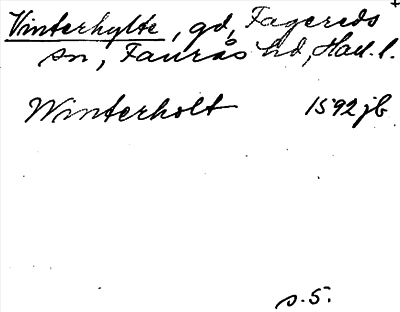 Vinterhylte, gd, Fagereds
sn, Faurås hd, Hall. l.
Winterholt 1592 jb
s. 5.